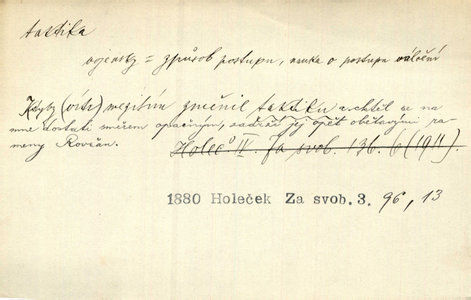 taktika
vojensky = způsob postupu, nauka o postupu válečném
Kdyby (vítr) nezměnil taktiku a chtěl se na
mne dostati směrem opačným, zadržel jej opět obětavými ra-
meny Rovčan.
Holeč IV. Za svob. 136. 6 (1911).
1880 Holeček Za svob. 3. 96, 13